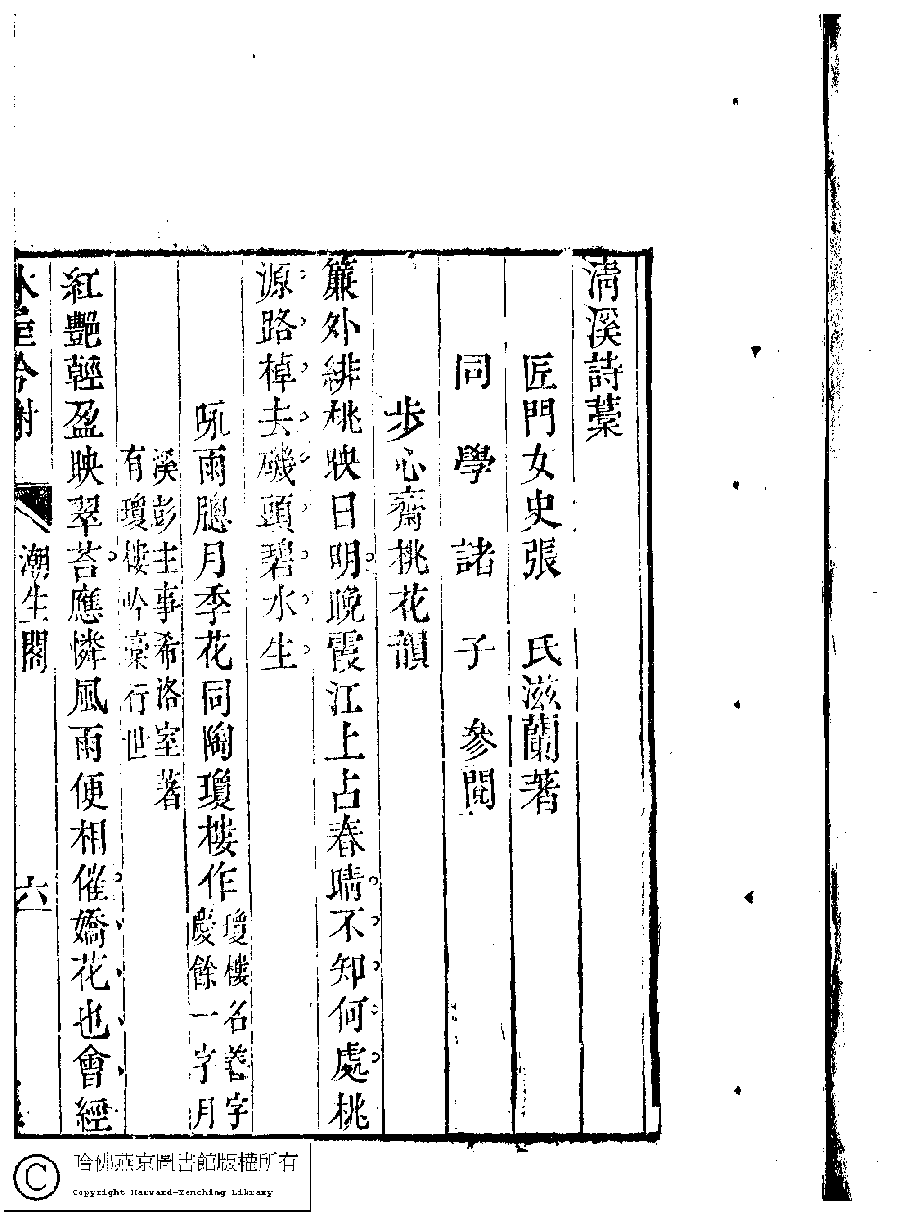 清溪詩藁
匠門女史張 氏滋蘭著
同學諸子參閱
步心齋桃花韻
簾外緋桃映日明晚霞江上占春晴不知何處桃
源路棹去磯頭碧水生
雨牕月季花同陶瓊樓作瓊樓名善字
慶餘一字月
溪彭主事希洛室著
有瓊樓吟藁行世
紅艷輕盈映翠苔應憐風雨便相催嬌花也會經
潮生閣
六
哈佛燕京圖書館版權所有
Copyright Harvard-Yenching Library